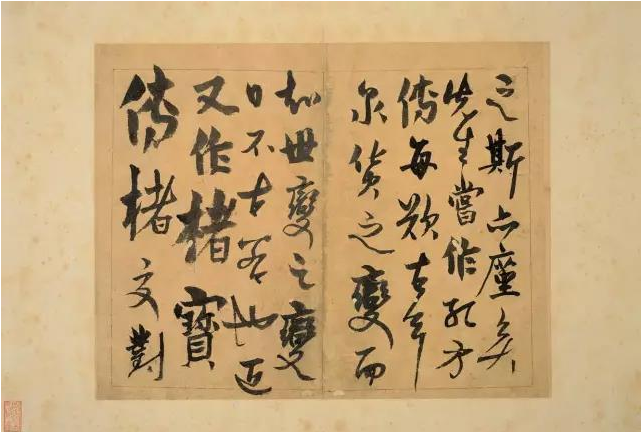 之斯亦座矣
先生嘗作孔方
傳每歎古
泉貨之變而
知世變之變
日不古若也近
又作楮寶
傳楮文對